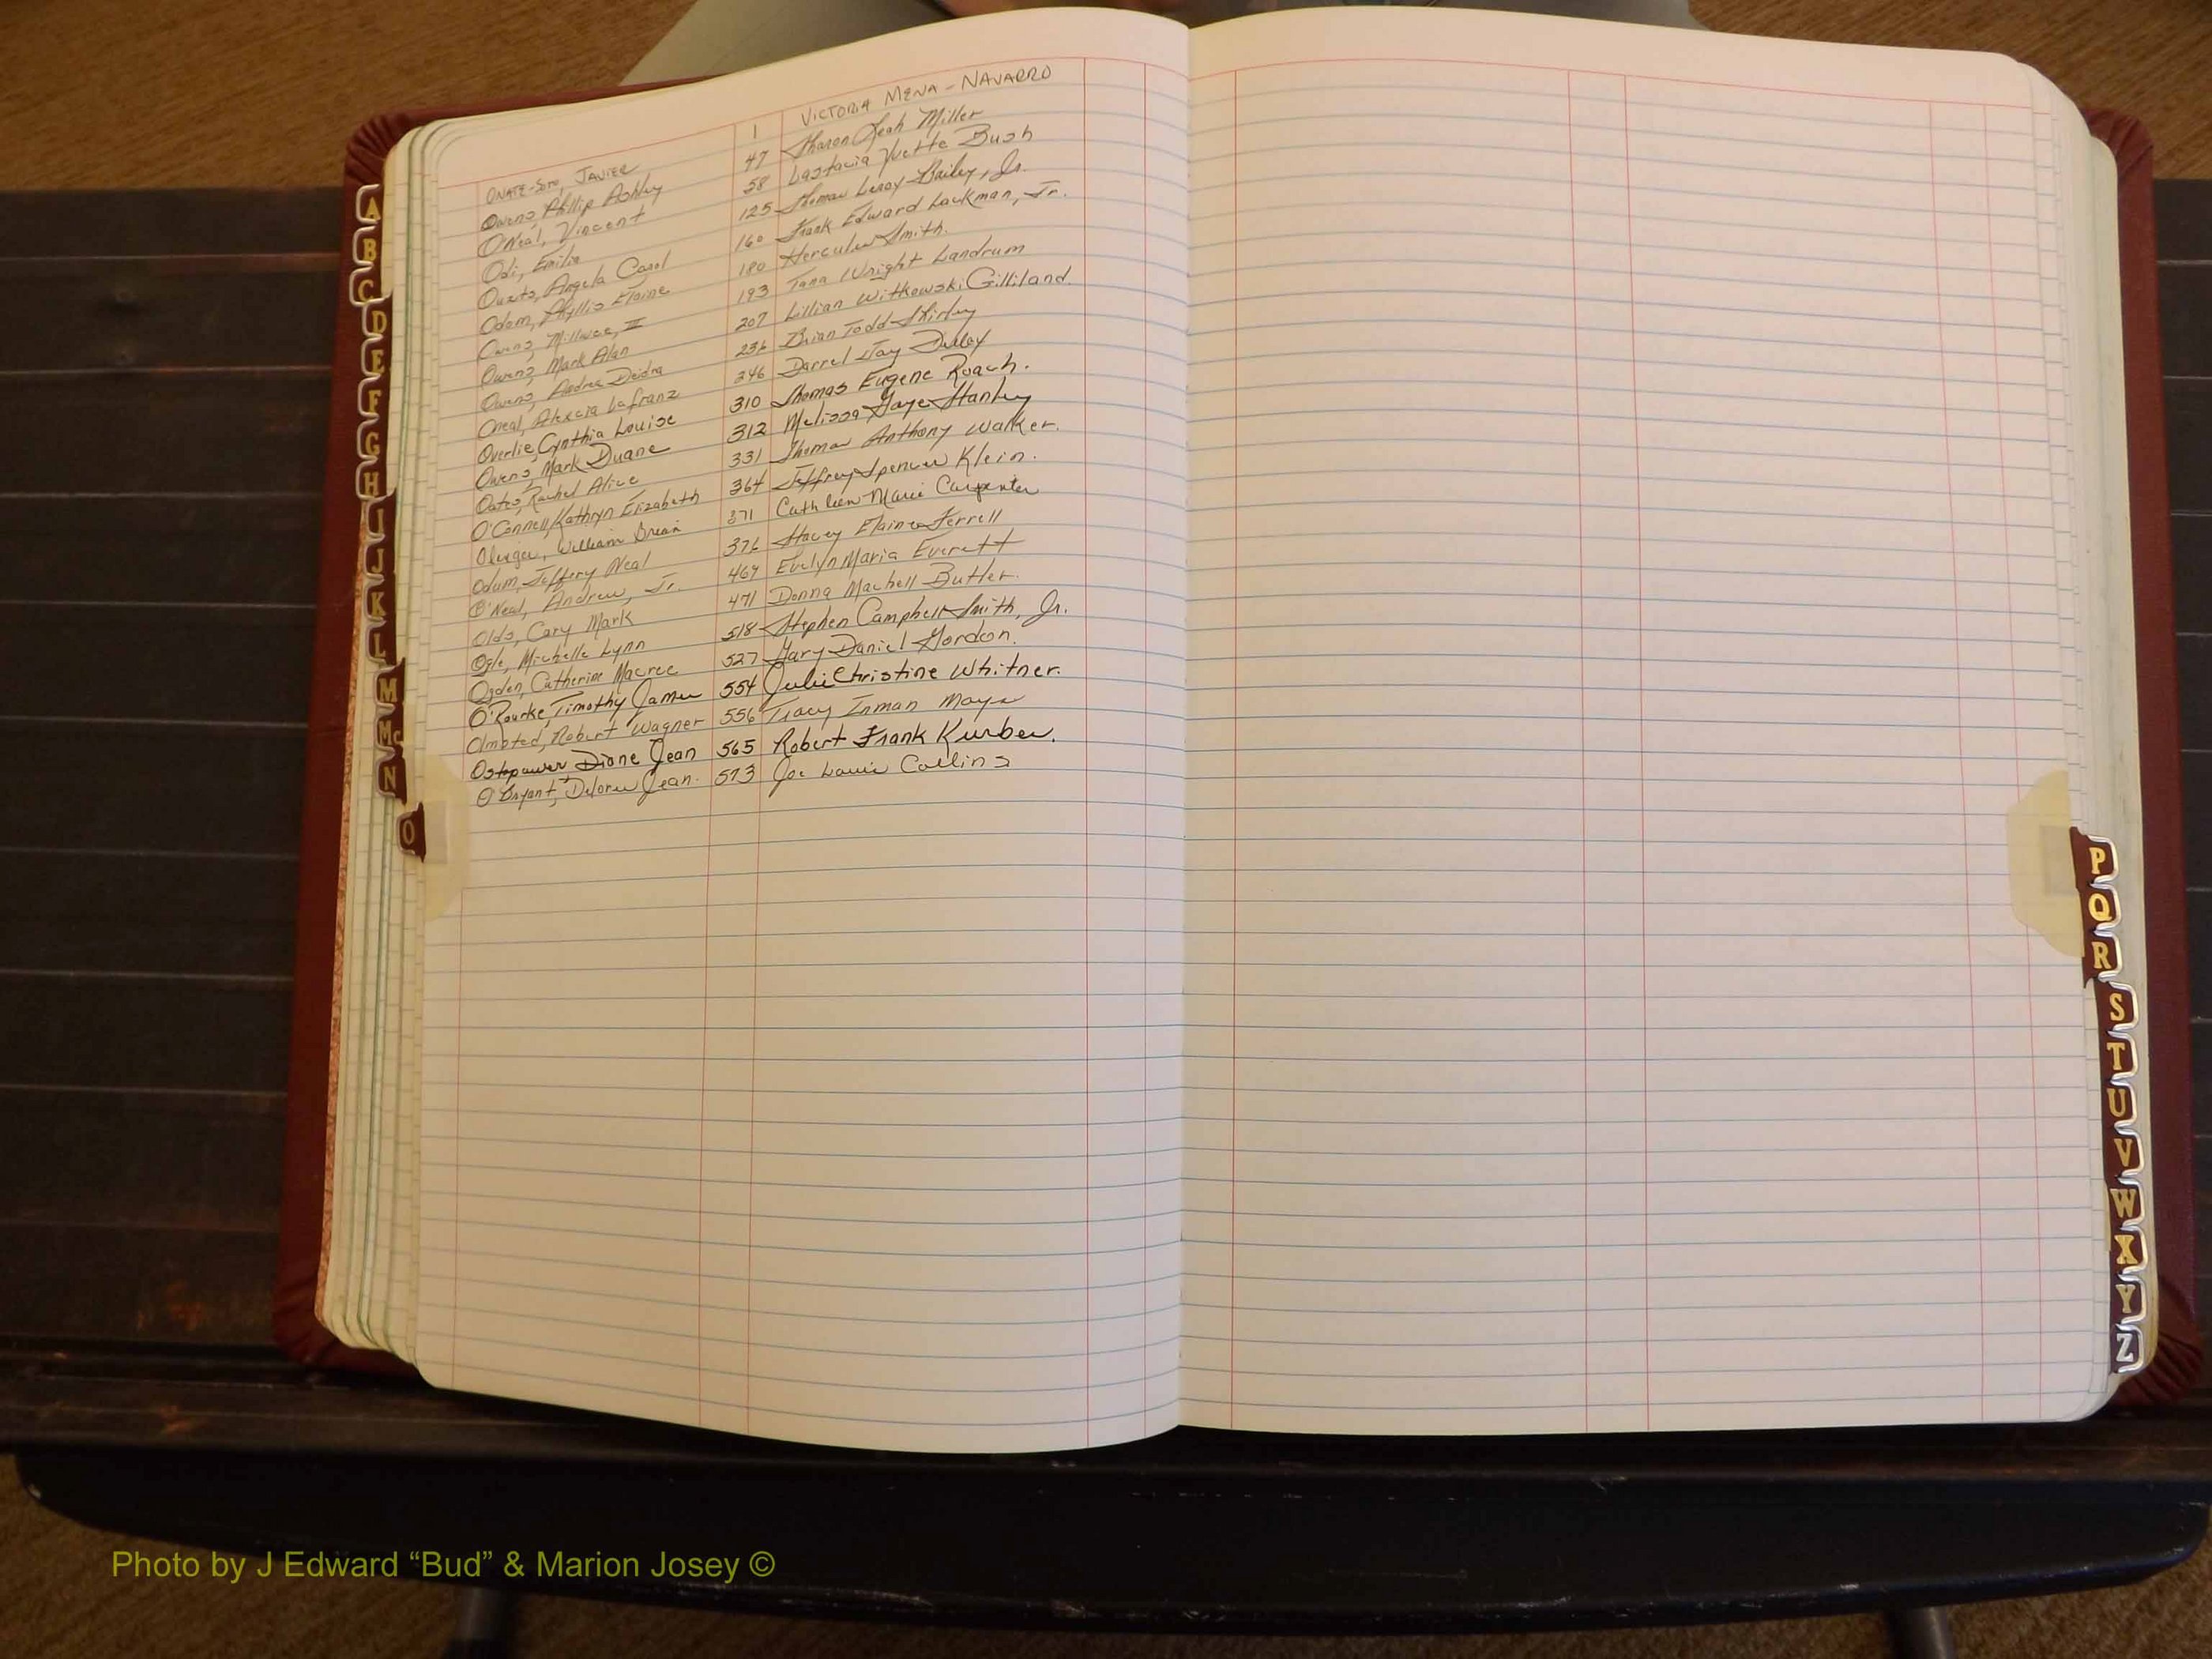 ONATE-SOTO, JAVIER 1 VICTORIA MENA-NAVARRO
Owens, Phillip Ashley 47 Sharon Leah Miller
O'Neal, Vincent 58 Lastacia Yvette Bush
Odi, Emilia 125 Thomas Leroy Bailey, Jr.
Ouzts, Angela Carol 160 Frank Edward Lackman, Jr.
Odom, Phyllis Elaine 180 Hercules Smith.
Owens, Millwee, III 193 Tana Wright Landrum
Owens, Mark Alan 207 Lillian Witkowski Gilliland.
Owens, Andrea Deidra 236 Brian Todd Shirley
Oneal, Alexcia Lafranz 246 Darrel Jay
Overlie, Cynthia Louise 310 Thomas Eugene Roach.
Owens, Mark Duane 312 Melissa Gaye Stanley
Oates, Rachel Alice 331 Thomas Anthony Walker.
O'Connell, Kathryn Elizabeth 364 Jeffrey Spencer Klein.
William Brian 371 Cathleen Marie Carpenter
Odum, Jeffery Neal 376 Stacey Elaine Ferrell
O'Neal, Andrew, Jr. 469 Evelyn Maria Everett
Olds, Cary Mark 471 Donna Machell Butler.
Ogle, Michelle Lynn 518 Stephen Campbell Smith, Jr.
Ogden, Catherine Macree 527 Gary Daniel Gordon.
O'Rourke, Timothy James 554 Julie Christine Whitner.
Olmsted, Robert Wagner 556 Tracy Inman Mays
Diane Jean 565 Robert Frank
O'Bryant, Delores Jean. 573 Joe Louis Collins
A
B
C
D
E
F
G
H
I
J
K
L
M
Mc
N
O
P
Q
R
S
T
U
V
W
X
Y
Z
Photo by J Edward “Bud” & Marion Josey ©